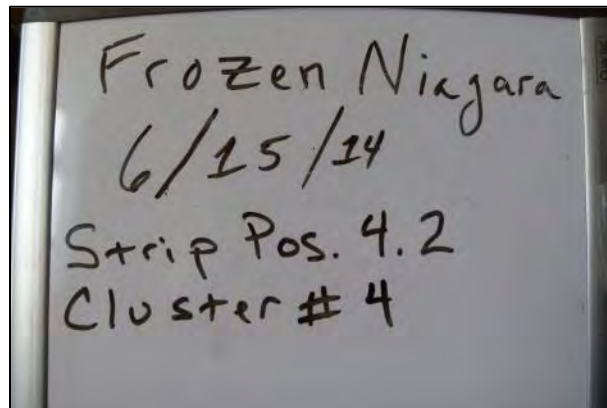 Frozen Niagara
6/15/14
Strip Pos. 4.2
Cluster # 4